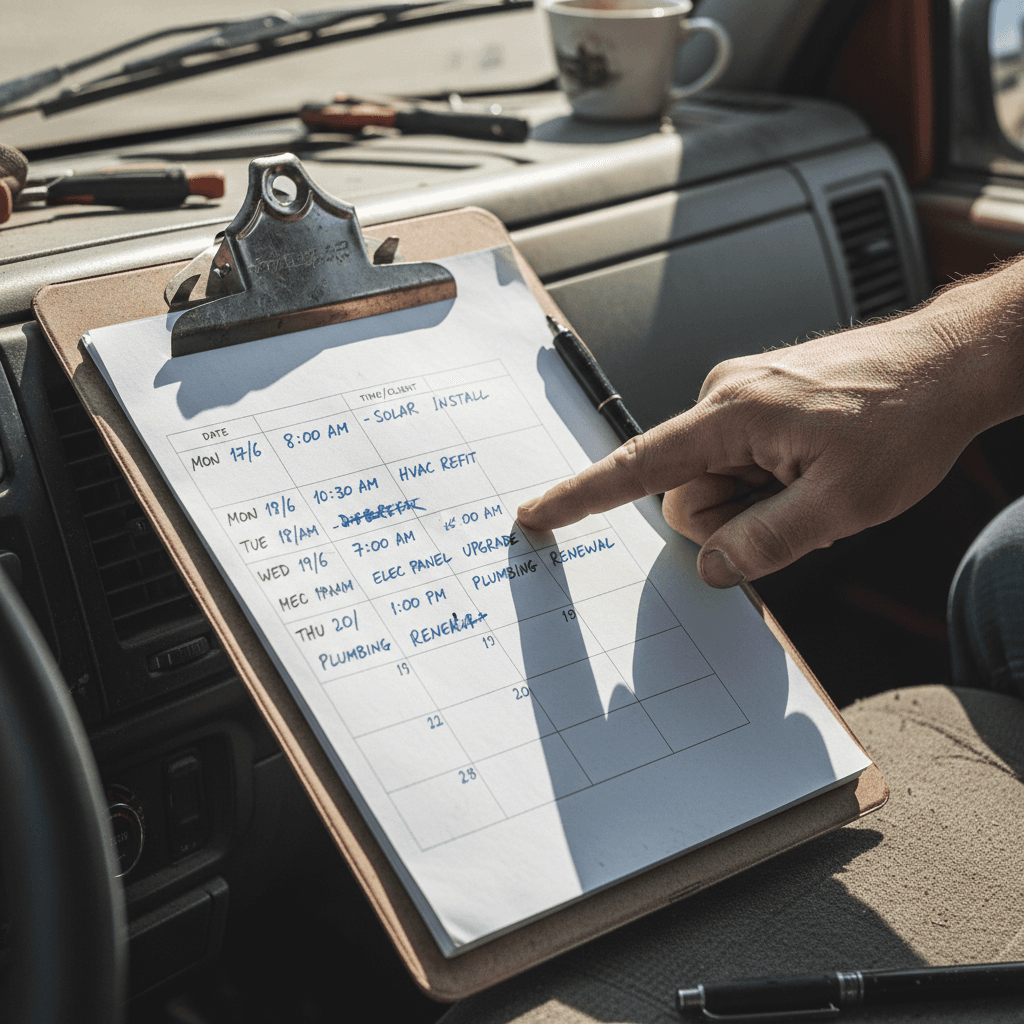 DATE TIME/CLIENT
MON 17/6 8:00 AM - SOLAR INSTALL
MON 18/6 10:30 AM HVAC REFIT
TUE 18/AM
WED 19/6 7:00 AM :00 AM
MEC ELEC PANEL UPGRADE
THU 20/ 1:00 PM PLUMBING RENEWAL
PLUMBING
19 19 19
22 20
28